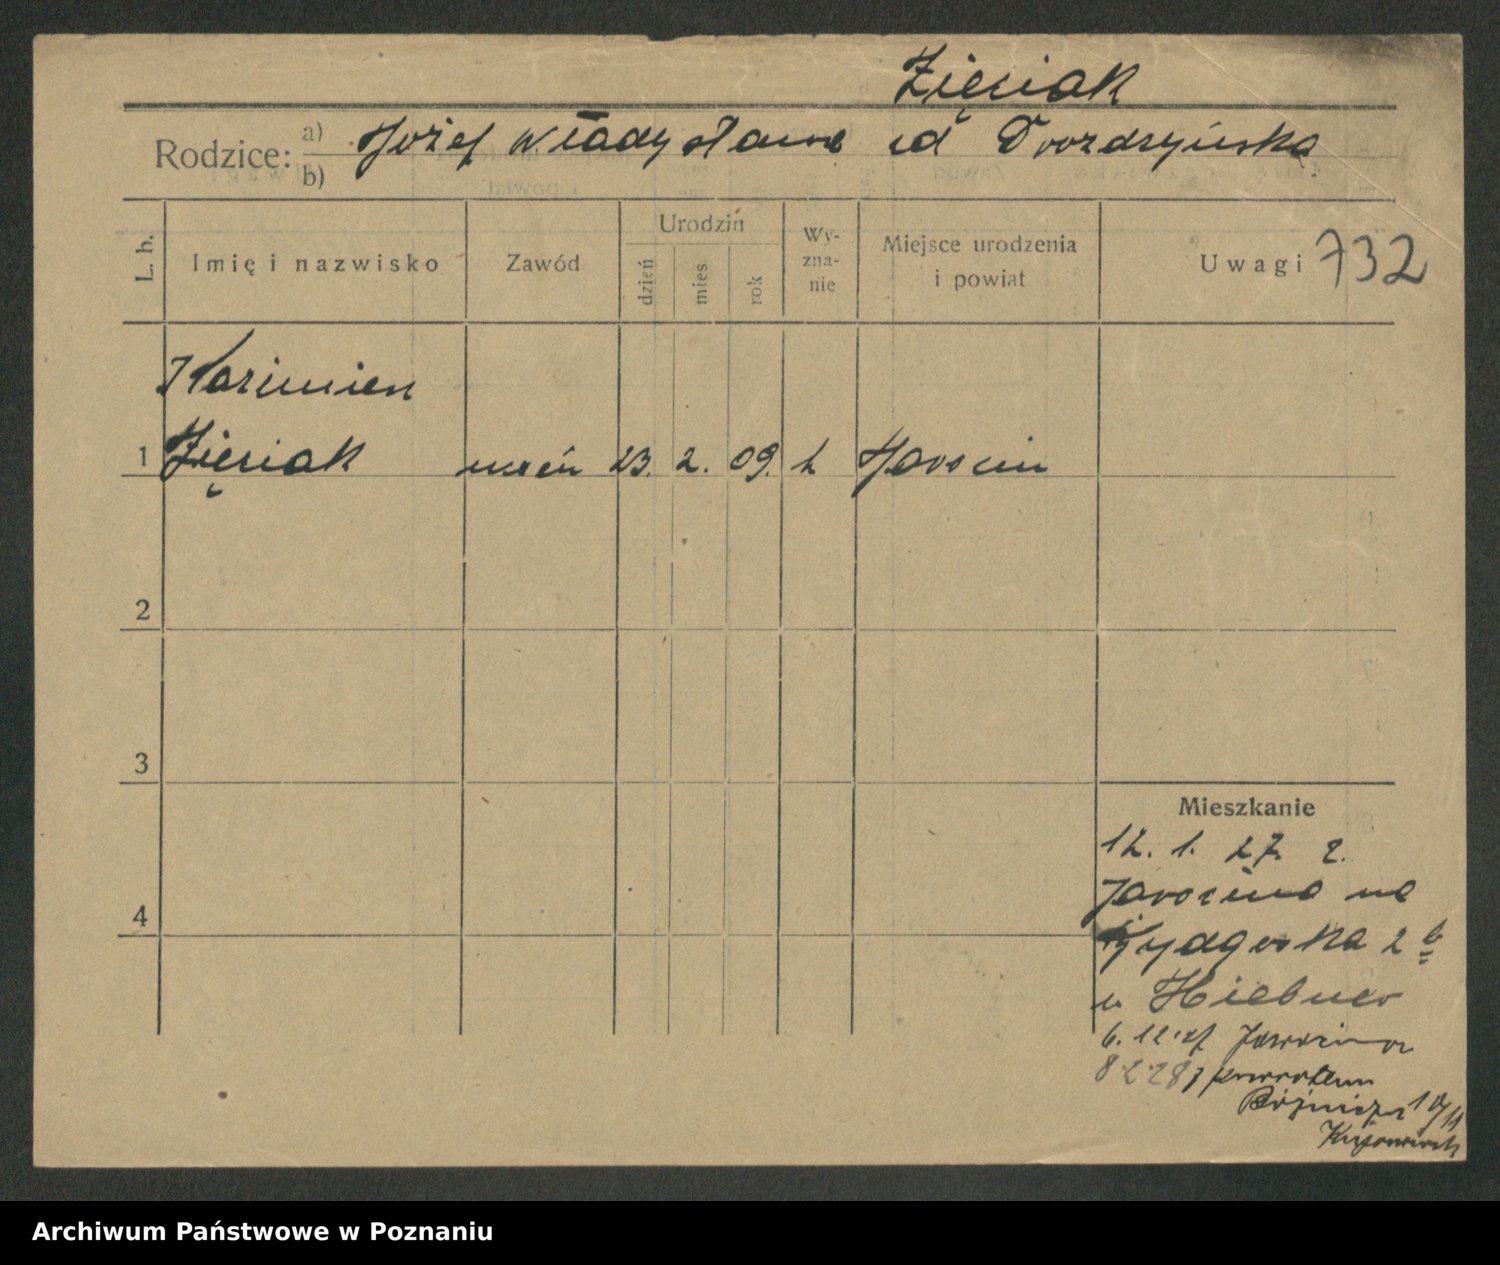 Zięciak
Rodzice: a) Józef Władysława zd Drozdzyńska
b)
L. b. Imię i nazwisko Zawód Urodzin dzień mies. rok Wy-zna-nie Miejsce urodzenia i powiat Uwagi 732
Kazimierz
1 Zięciak uczeń 23. 2. 09. k Jarocin
2
3
Mieszkanie
12. 1. 27. z
Jarocina na
4
2 b
u. Hiebner
6. 12. 27 Jarocina
8 2 28 z powrotem
Archiwum Państwowe w Poznaniu